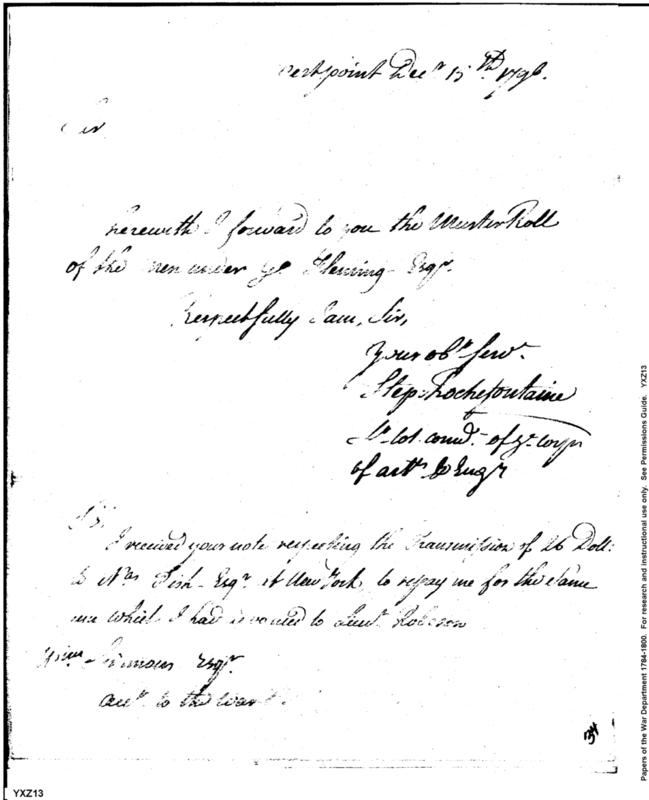 Westpoint Decr 15th 1796.
Sir
herewith I forward to you the Muster Roll
of the men under Geo Fleming Esqr.
Respectfully I am, Sir,
your obt Servt.
Step. Rochefontaine
Lt Col. comdt. of ye corps
of artts & Engrs
P.S.
I received your note respecting the Transmission of 26 Doll:
to Nas Fish Esqr. at New York to repay me for the same
which I had to Lieut. Robeson
Willm Simmons Esqr.
acct. to the war
34
YXZ13
Papers of the War Department 1784-1800. For research and instructional use only. See Permissions Guide. YXZ13